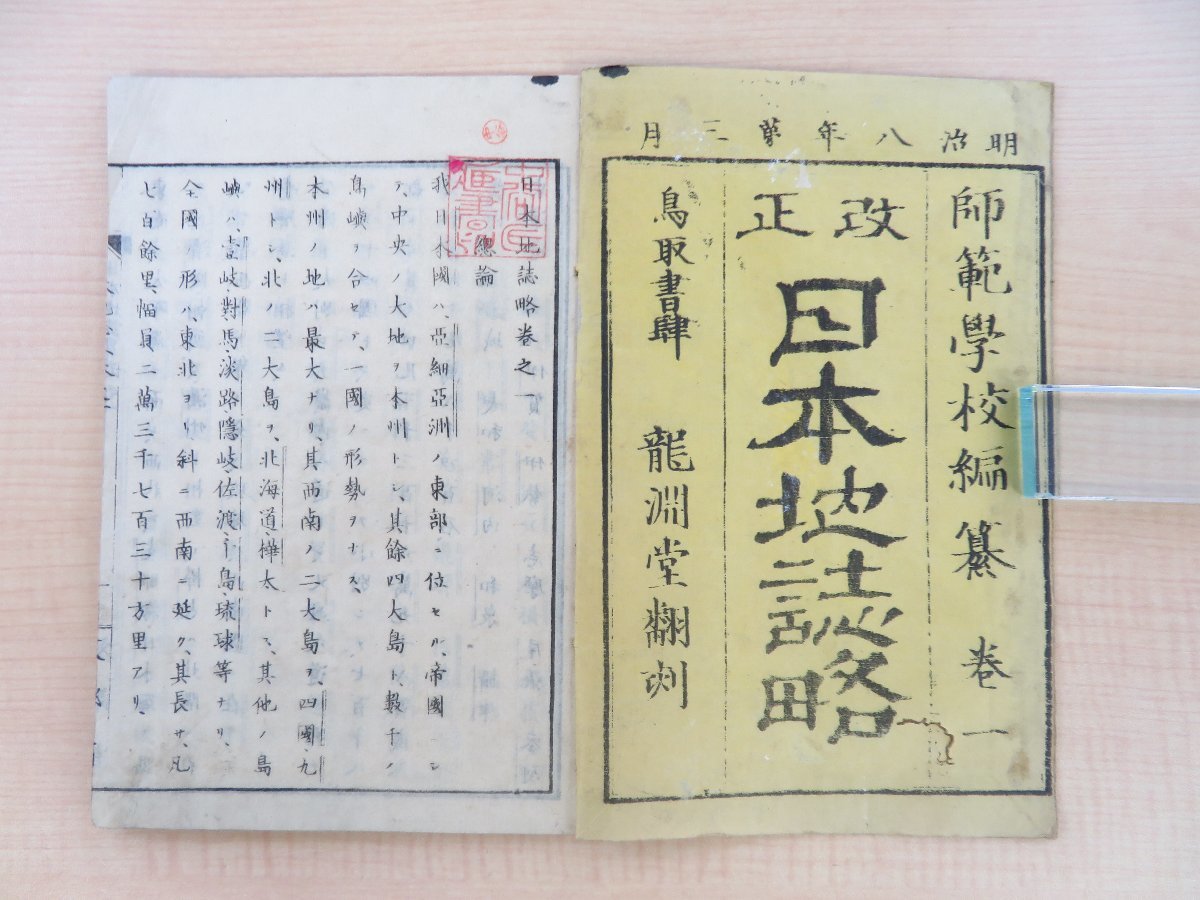 明治八年第三月
師範學校編纂 卷一
改正
日本地誌略
鳥取書肆 龍淵堂翻刻
日本地誌略卷之一
總論
我日本國ハ、亞細亞洲ノ東部ニ位セル、帝國ニシ
テ、中央ノ大地ヲ本州トシ、其餘四大島ト數十ノ
島嶼ヲ合セテ、一國ノ形勢ヲナス、
本州ノ地ハ最大ナリ、其西南ノ二大島ヲ、四國、九
州トシ、北ノ二大島ヲ、北海道、樺太トス、其他ノ島
嶼ハ、壹岐、對馬、淡路、隱岐、佐渡、千島、琉球等ナリ、
全國ノ形ハ、東北ヨリ斜ニ西南ニ延ク、其長サ、凡
七百餘里、幅員二萬三千七百三十方里アリ、